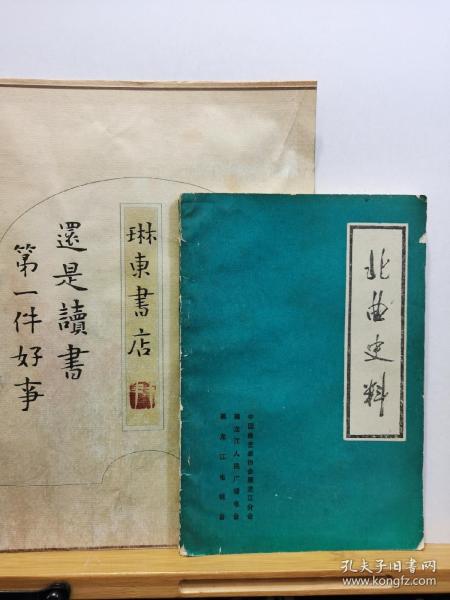 琳東書店
還是讀書
第一件好事
北曲史料
中国曲艺家协会黑龙江分会
黑龙江人民广播电台
黑龙江电视台
孔夫子旧书网
www.kongfz.com